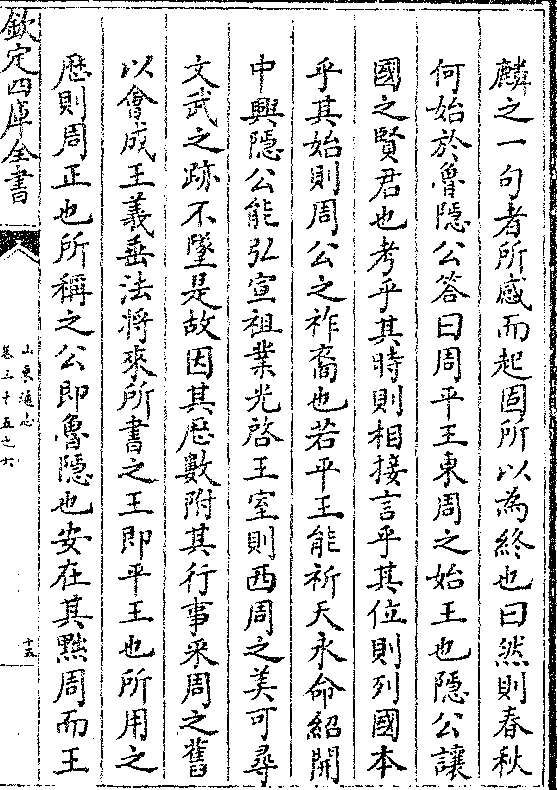 麟之一句者所感而起固所以為終也曰然則春秋
何始於魯隱公答曰周平王東周之始王也隱公讓
國之賢君也考乎其時則相接言乎其位則列國本
乎其始則周公之祚裔也若平王能祈天永命紹開
中興隱公能弘宣祖業光啓王室則西周之美可尋
文武之跡不墜是故因其厯數附其行事采周之舊
以會成王義垂法將來所書之王即平王也所用之
厯則周正也所稱之公即魯隱也安在其黜周而王
欽定四庫全書
山東通志
卷三十五之六
十五